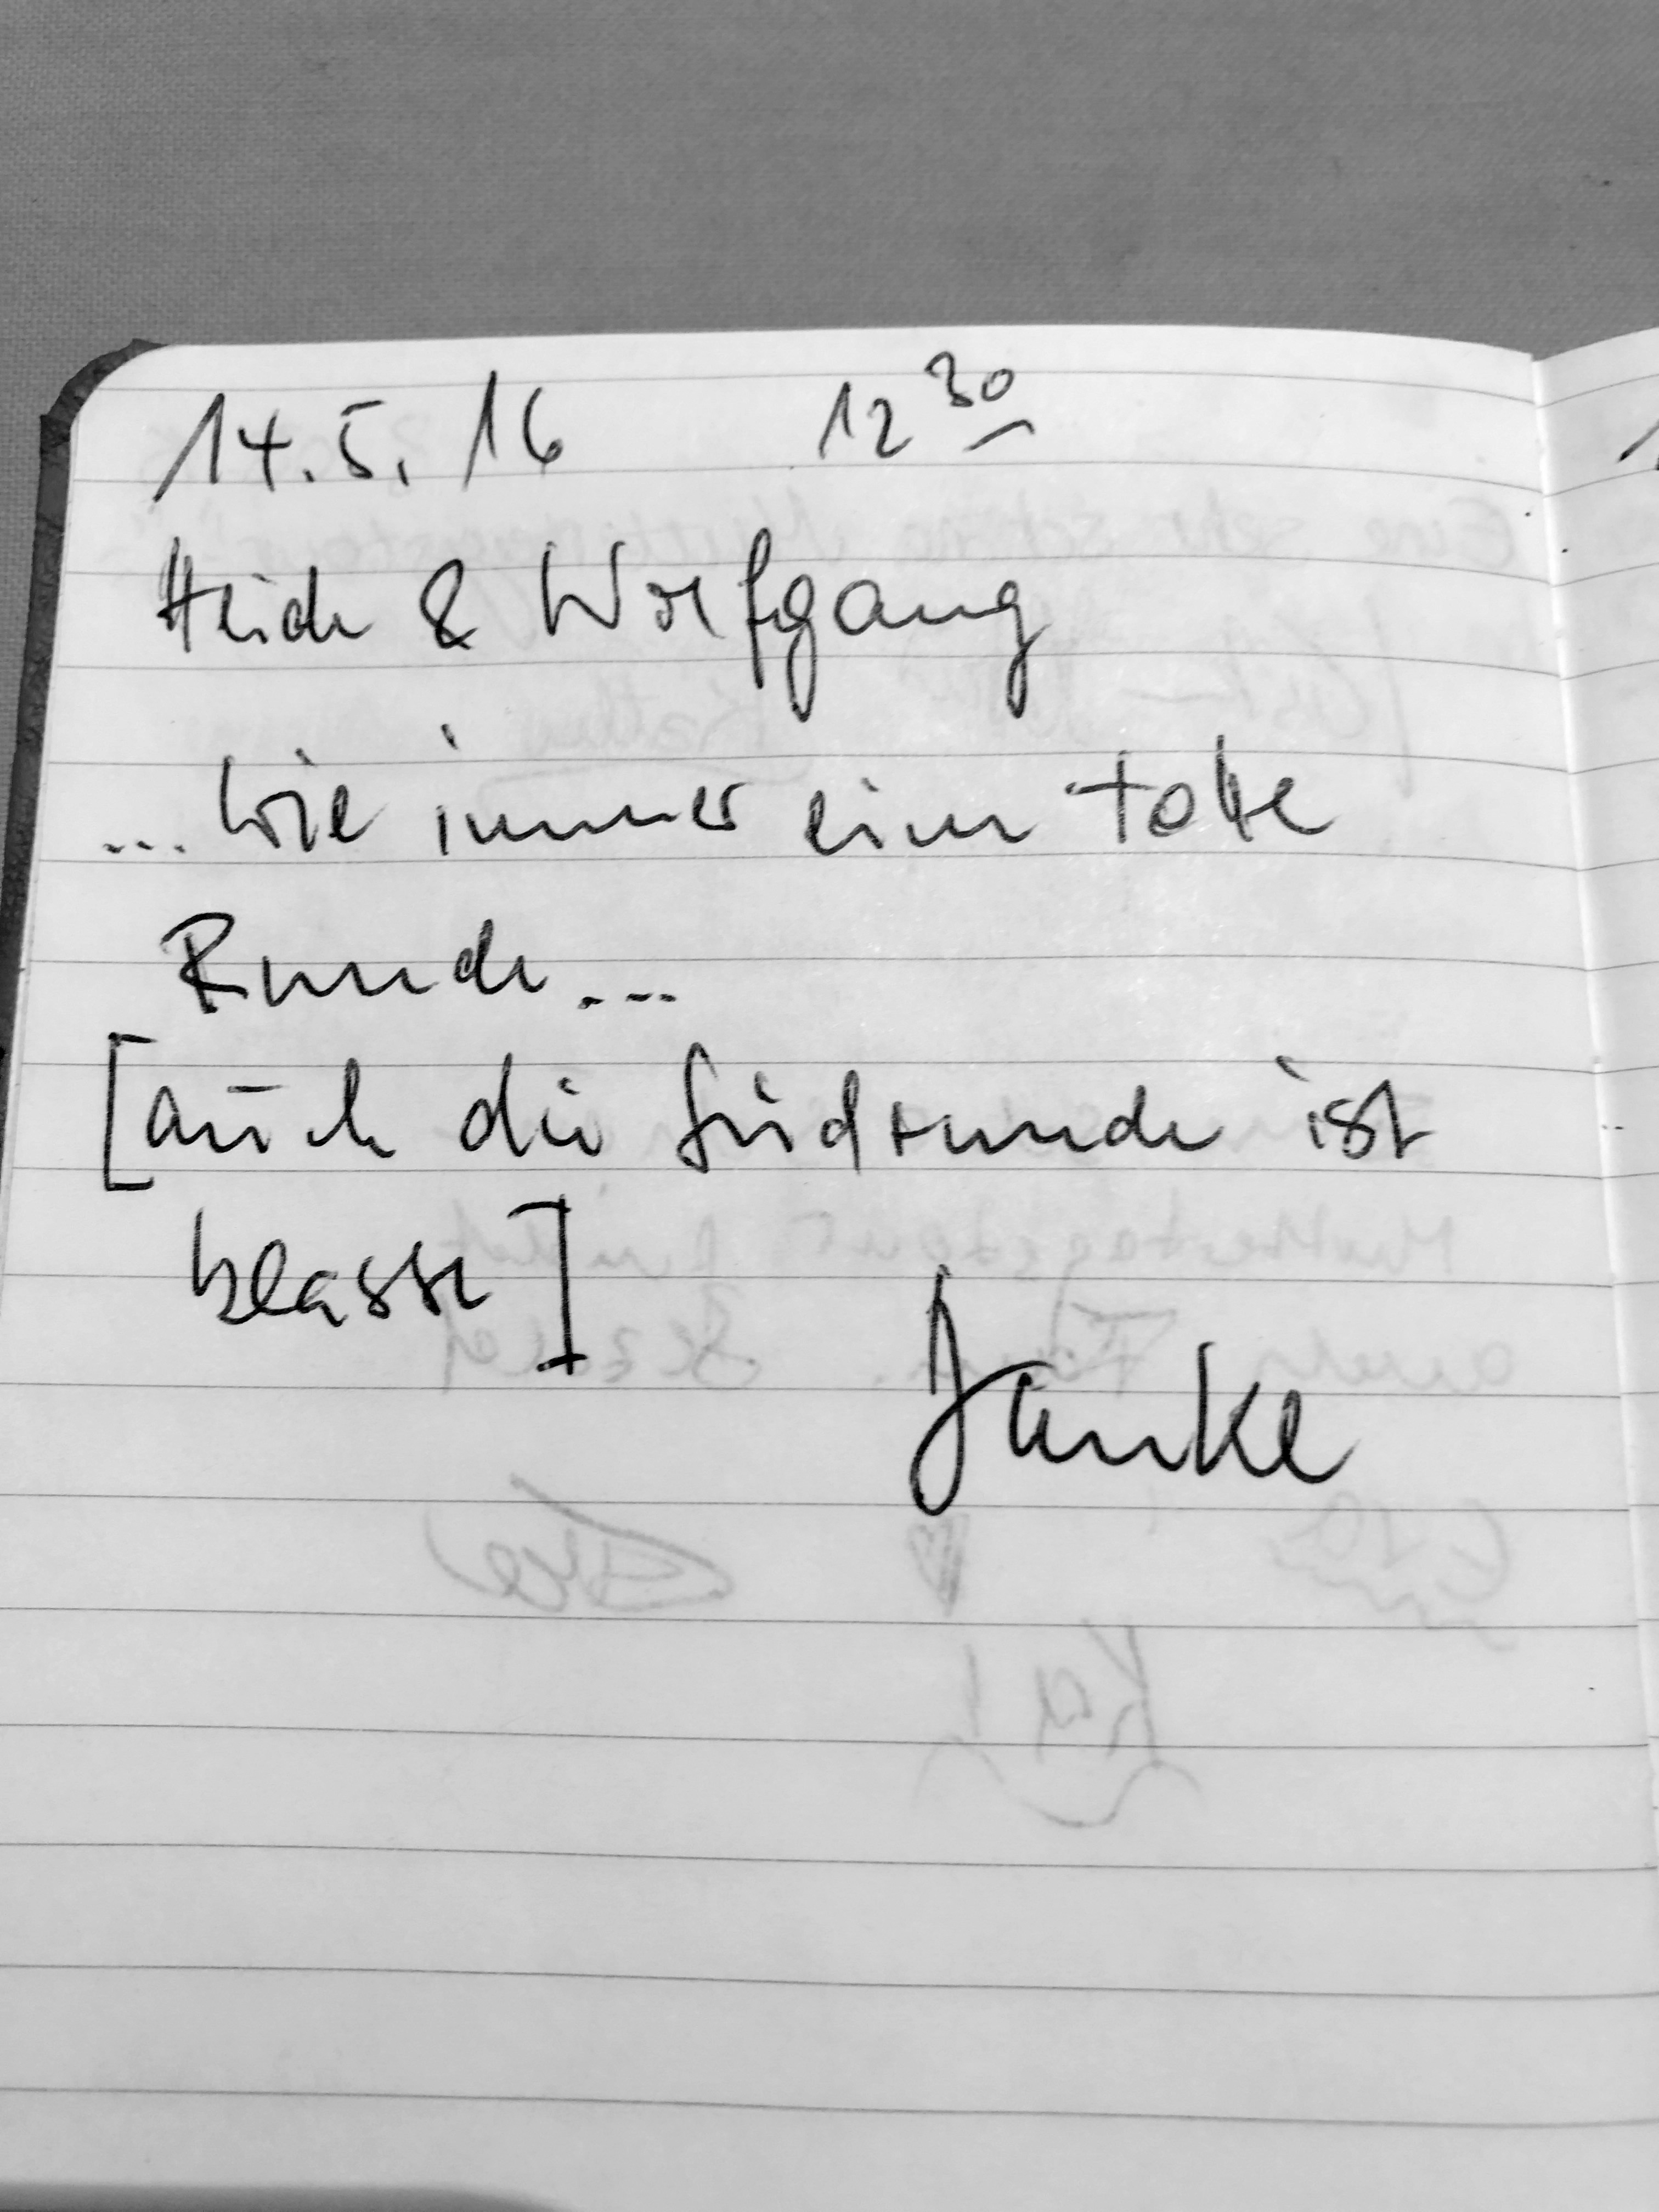 14.5.16 12 30
Heide & Wolfgang
... wie immer eine tolle
Runde ...
[auch die Südrunde ist
klasse]
Danke